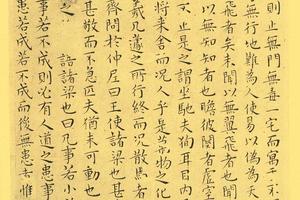 則止無門無毒一宅而寓于不
無行地難為人使易以偽為天
飛者矣未聞以無翼飛者也聞
以無知知者也瞻彼闋者虛室
止是之謂坐馳夫徇耳目內
來舍而況人乎是萬物之化
羲几蘧之所行終而況散焉者
齊問於仲尼曰王使諸梁也甚
甚敬而不急匹夫猶未可動也
之 語諸梁也曰凡事若小
患若不成則必有人道之患事
患若成若不成而後無患者惟